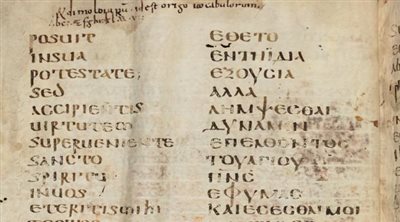 Ethimologiarum idest origo vocabulorum
POSUIT ΕΘΕΤΟ
INSUA ΕΝΤΗΙΔΙΑ
POTESTATE ΕΞΟΥΣΙΑ
SED ΑΛΛΑ
ACCIPIENTIS ΛΗΜΨΕΣΘΑΙ
UIRTUTEM ΔΥΝΑΜΕΝ
SUPERUENIENTE ΕΠΕΛΘΟΝΤΟΣ
SANCTO ΤΟΥΑΓΙΟΥ
SPIRITU ΠΝΣ
INUOS ΕΦΥΜΑΣ
ETERITISMIHI ΚΑΙΕΣΕΘΟΝΜΟΙ